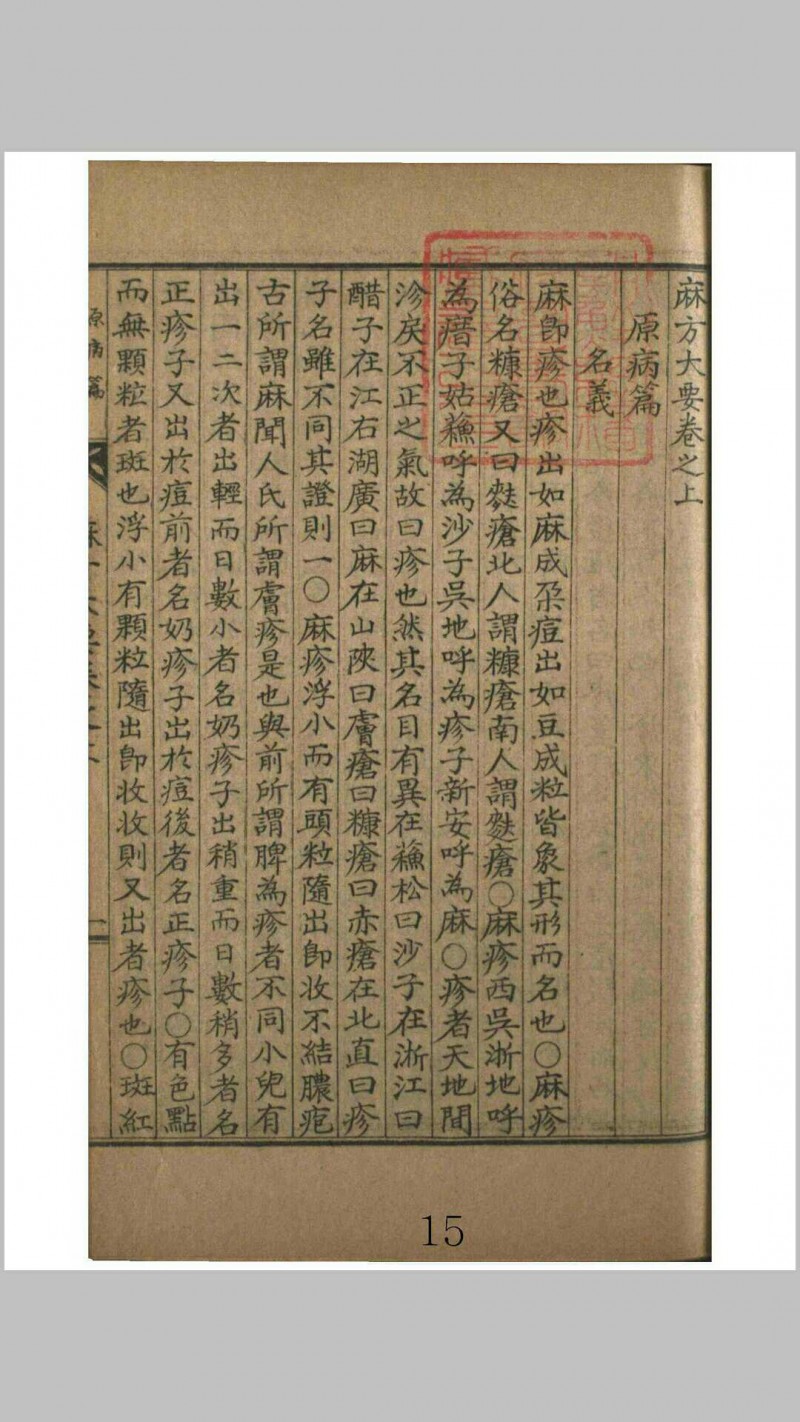 麻方大要卷之上
原病篇
名義
麻卽疹也疹出如麻成朶痘出如豆成粒皆象其形而名也〇麻疹
俗名糠瘡又曰麩瘡北人謂糠瘡南人謂麩瘡〇麻疹西吳浙地呼
為㾦子姑蘓呼為沙子吳地呼為疹子新安呼為麻〇疹者天地間
沴戾不正之氣故曰疹也然其名目有異在蘓松曰沙子在浙江曰
醋子在江右湖廣曰麻在山陜曰膚瘡曰糠瘡曰赤瘡在北直曰疹
子名雖不同其證則一〇麻疹浮小而有頭粒隨出卽收不結膿疱
古所謂麻聞人氏所謂膚疹是也與前所謂脾為疹者不同小兒有
出一二次者出輕而日數小者名奶疹子出稍重而日數稍多者名
正疹子又出於痘前者名奶疹子出於痘後者名正疹子〇有色點
而無顆粒者斑也浮小有顆粒隨出卽收收則又出者疹也〇斑紅
原病篇
一
15